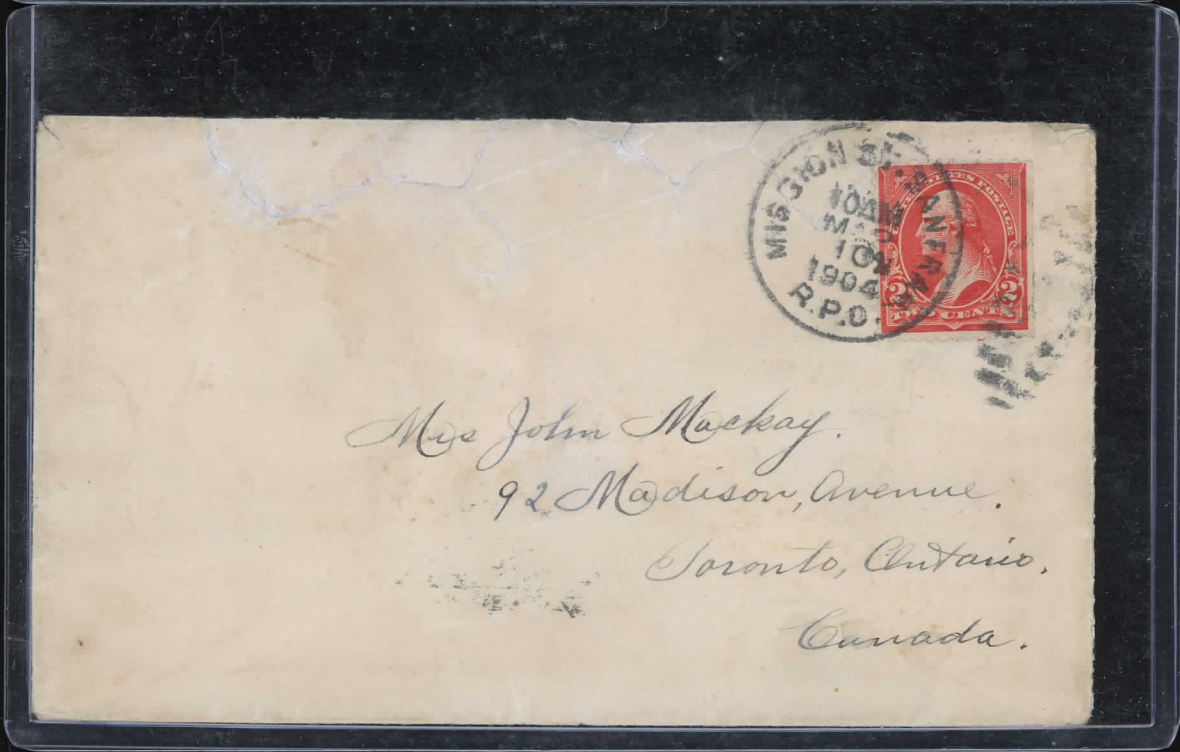 MISSION ST. SAN FRAN.
10 AM
MAR
10
1904
R.P.O.
UNITED STATES POSTAGE
2 2
TWO CENTS
Mrs John Mackay.
92 Madison, Avenue.
Toronto, Ontario.
Canada.